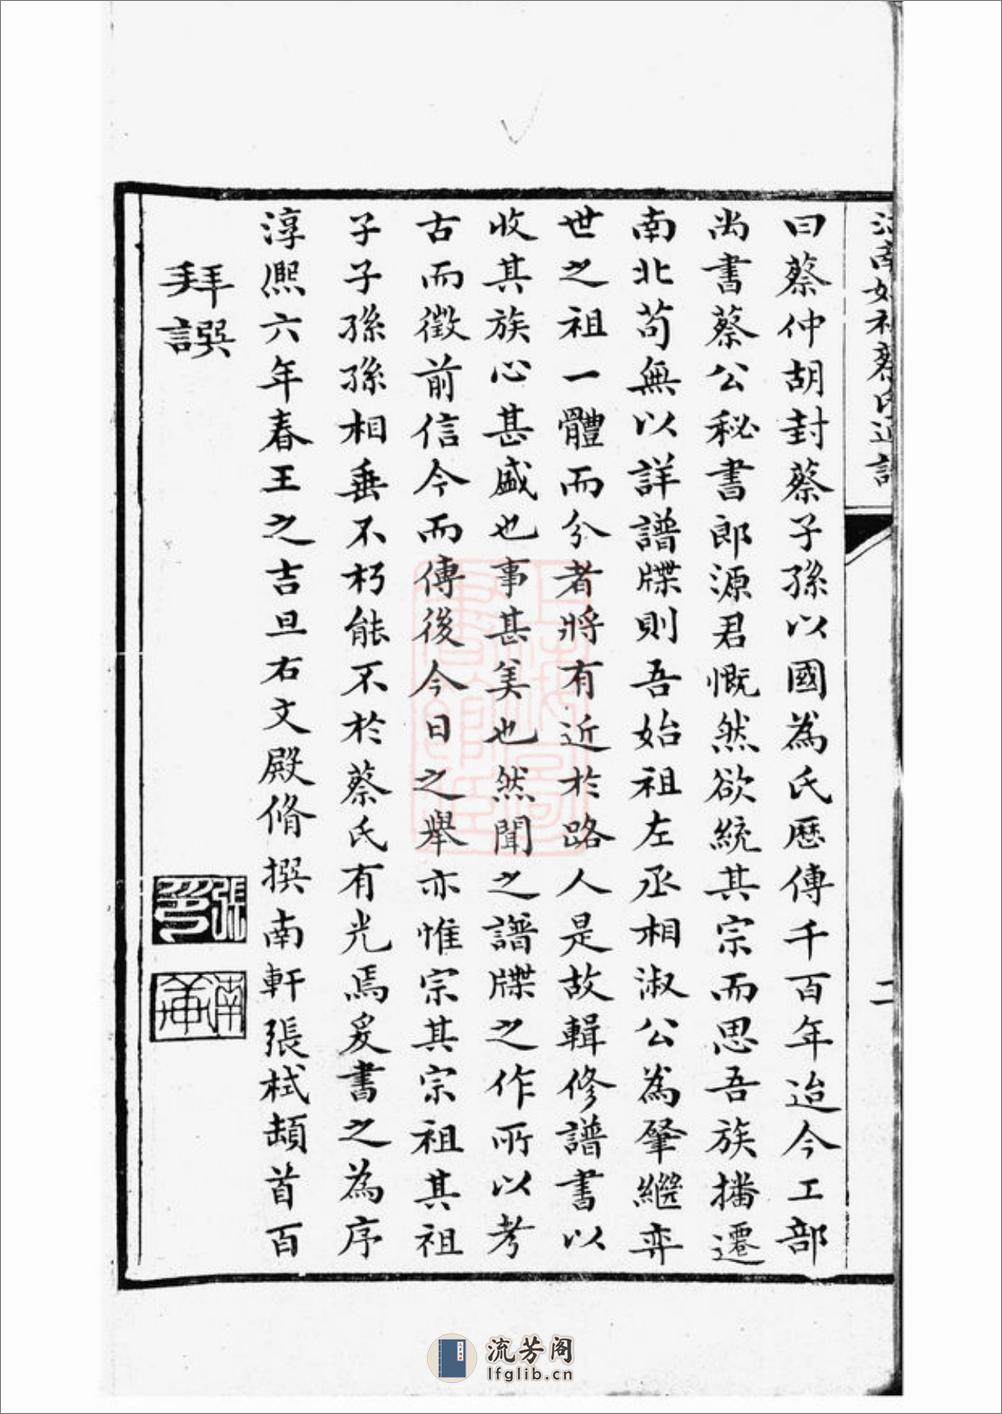 曰蔡仲胡封蔡子孫以國為氏歷傳千百年迨今工部
尚書蔡公秘書郎源君慨然欲統其宗而思吾族播遷
南北苟無以詳譜牒則吾始祖左丞相淑公為肇繼弈
世之祖一體而分者將有近於路人是故輯修譜書以
收其族心甚盛也事甚美也然聞之譜牒之作所以考
古而徵前信今而傳後今日之舉亦惟宗其宗祖其祖
子子孫孫相垂不朽能不於蔡氏有光焉爰書之為序
淳熙六年春王之吉旦右文殿脩撰南軒張栻頓首百
拜譔
二
張印
南軒
流芳阁
lfglib.cn